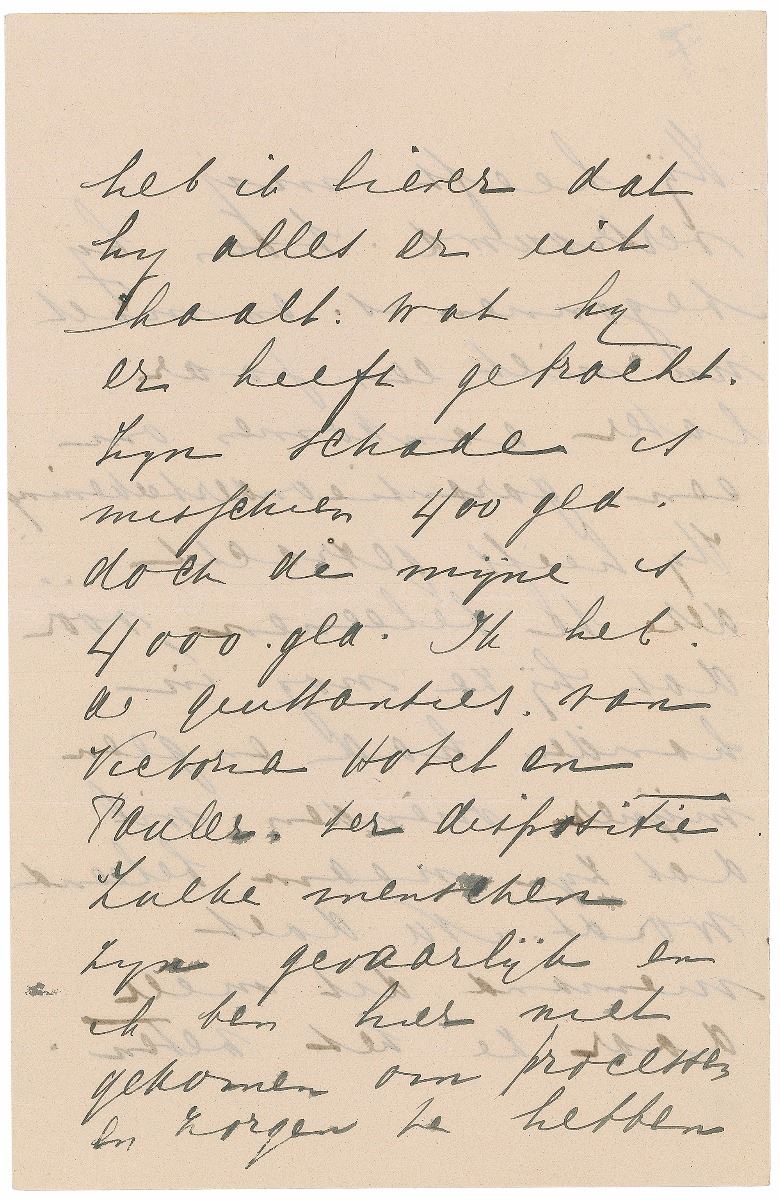 heb ik liever dat
hy alles er uit
haalt: wat hy
er heeft gebracht.
Zyn schade is
misschien 400 gld.
doch de mijne is
4000. gld. Ik heb
de quittanties. van
Victoria Hotel en
Pauler. ter dispositie
Zulke menschen
zyn gevaarlijk en
ik ben hier niet
gekomen om processen
en zorgen te hebben